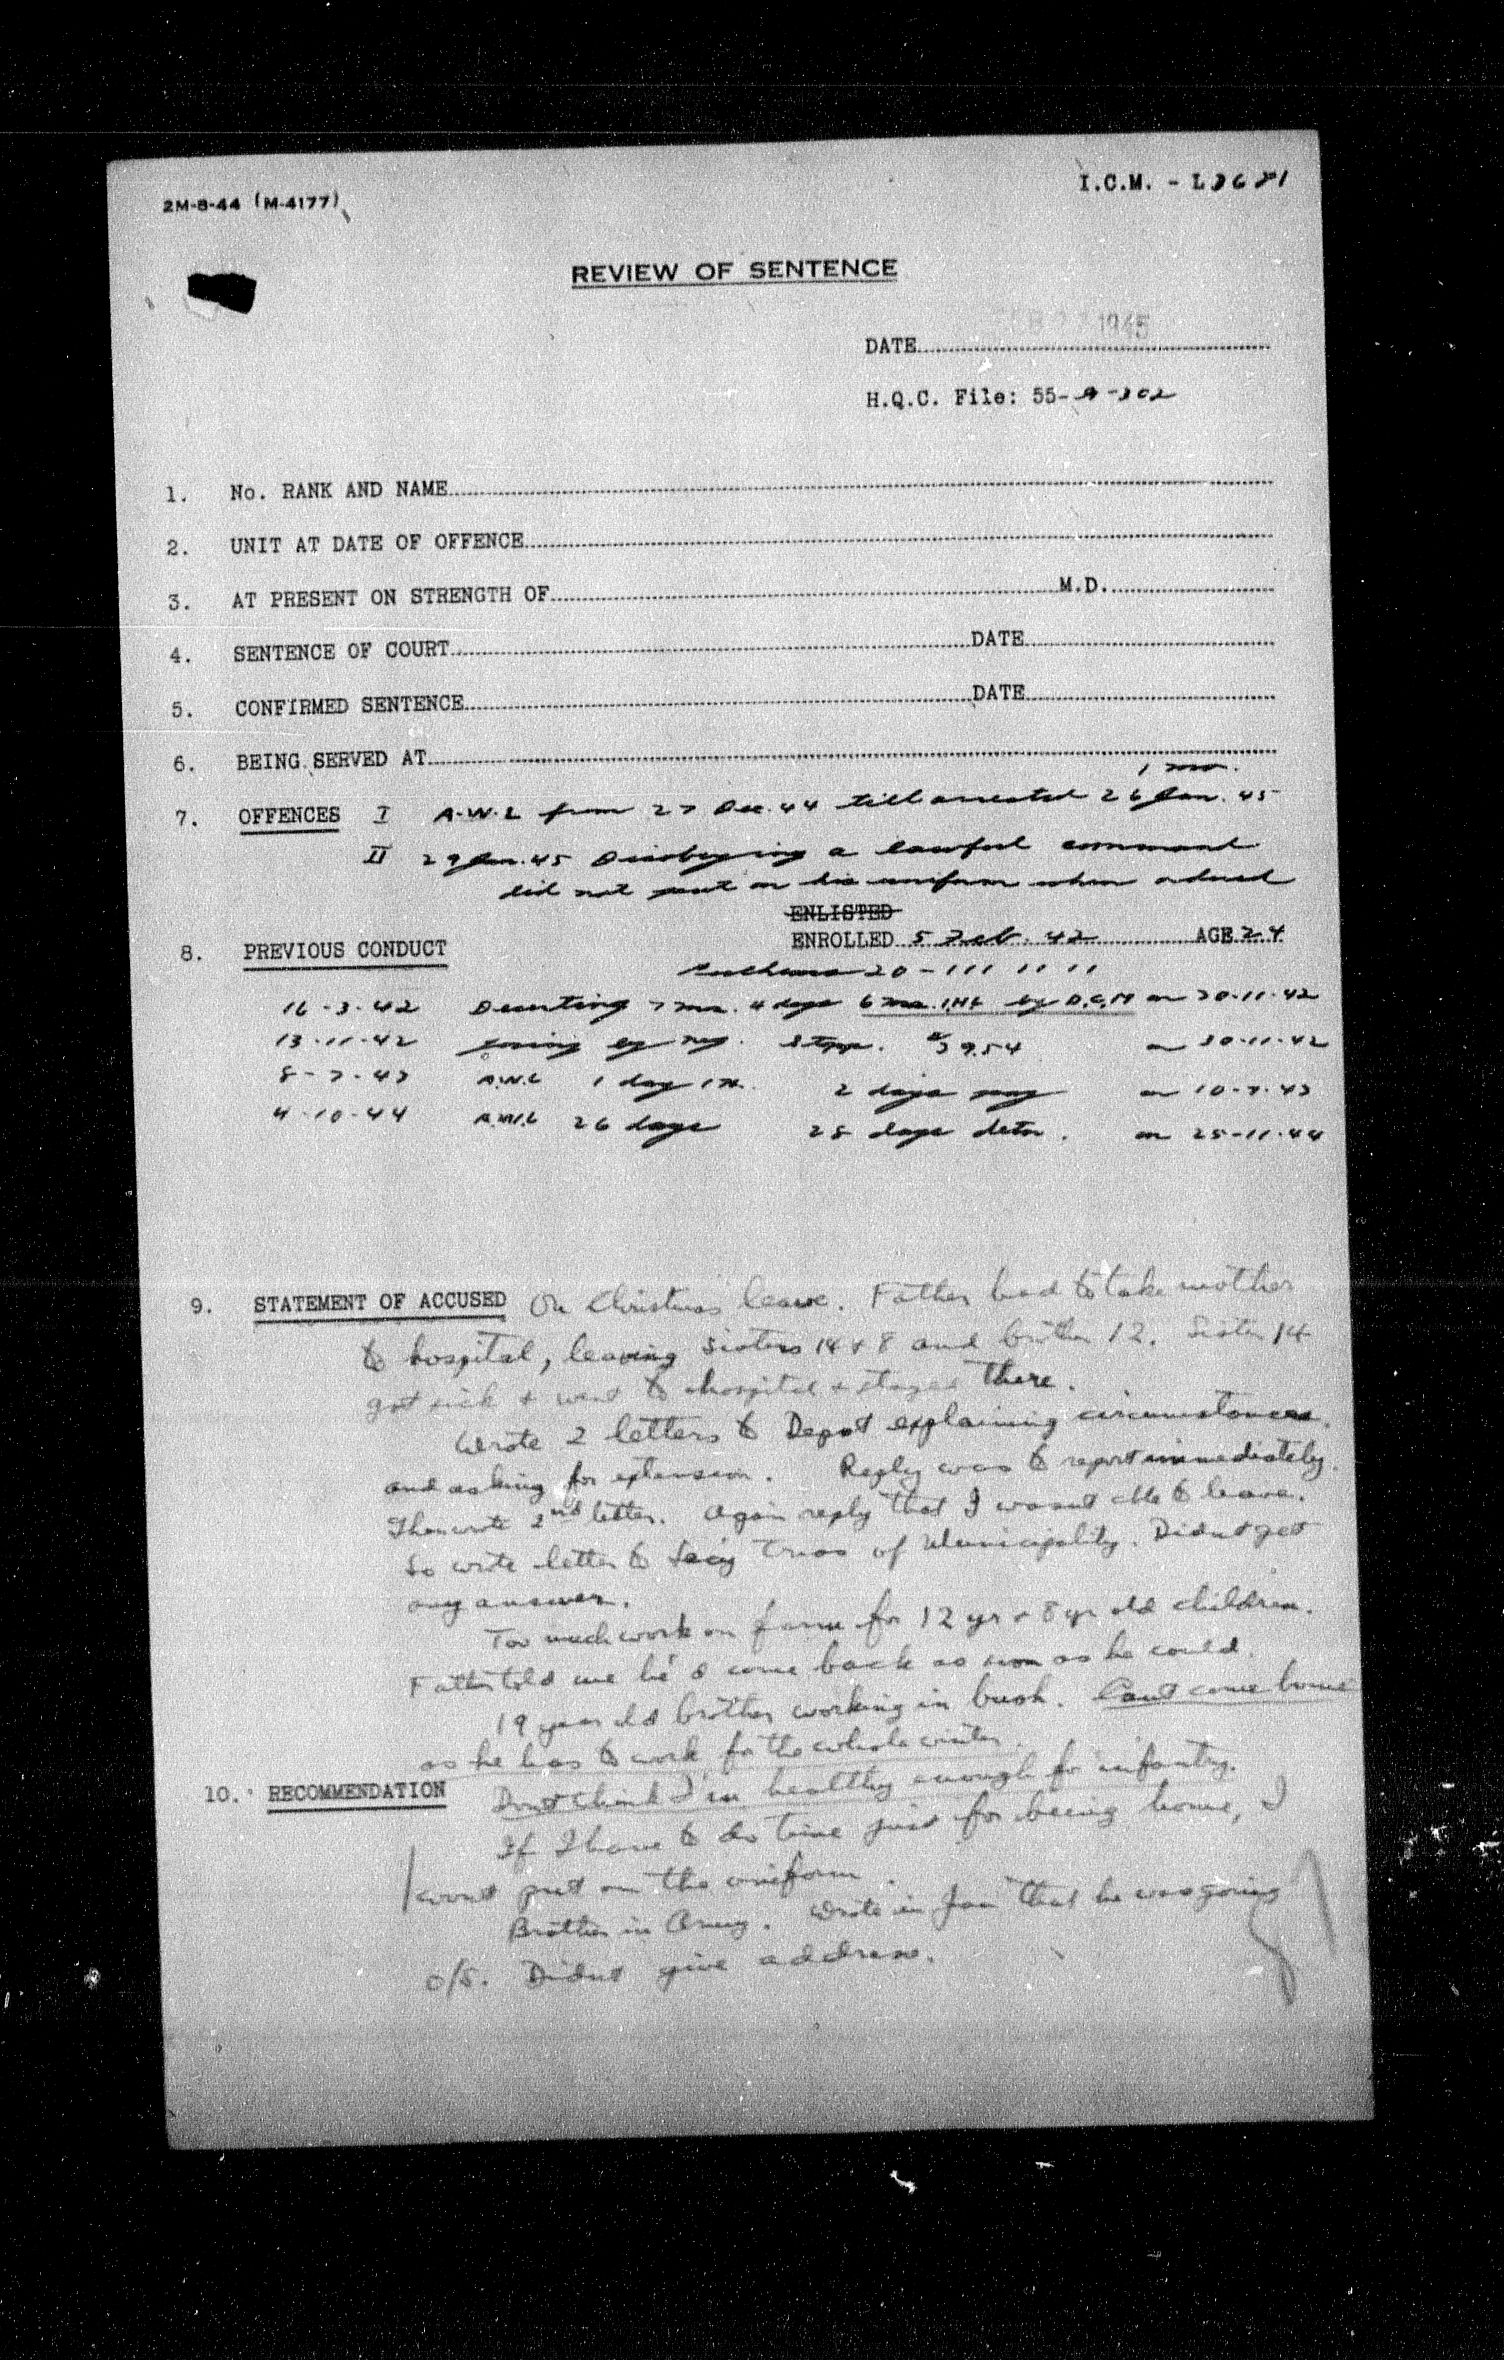 2M-8-44 (M-4177)
I.C.M. - L
REVIEW OF SENTENCE
DATE 1945
H.Q.C. File: 55-
1. No. RANK AND NAME
2. UNIT AT DATE OF OFFENCE
3. AT PRESENT ON STRENGTH OF M.D.
4. SENTENCE OF COURT DATE
5. CONFIRMED SENTENCE DATE
6. BEING SERVED AT
1 mo.
7. OFFENCES I A.W.L from 27 Dec. 44 till arrested 26 Jan. 45
II 29 Jan. 45 Disobeying a lawful command
did not put on his uniform when ordered
ENLISTED
ENROLLED 5 Feb. 42 AGE 24
8. PREVIOUS CONDUCT
20 - 111 11 11
16-3-42 Deserting 7 mos. 4 days 6 mos. by D.C.M on 30-11-42
13-11-42 losing by neg. Stopp. $39.54 on 30-11-42
8-7-43 A.W.L 1 day 2 days on 10-7-43
4-10-44 A.W.L 26 days 28 days detn. on 25-11-44
9. STATEMENT OF ACCUSED On Christmas leave. Father had to take mother
to hospital, leaving sisters 14 & 8 and brother 12. Sister 14
got sick & went to hospital & stayed there.
Wrote 2 letters to Depot explaining circumstances
and asking for extension. Reply was to report immediately.
Then wrote 2nd letter. Again reply that I wasnt able to leave.
So wrote letter to Sec'y Treas of Municipality. Didnt get
any answer.
Too much work on farm for 12 yr & 8 yr old children.
Father told me he'd come back as soon as he could.
19 year old brother working in bush. Cant come home
as he has to work for the whole winter.
10. RECOMMENDATION Dont think I'm healthy enough for infantry.
If I have to do time just for being home, I
wont put on the uniform.
Brother in Army. Wrote in Jan that he was going
o/s. Didnt give address.